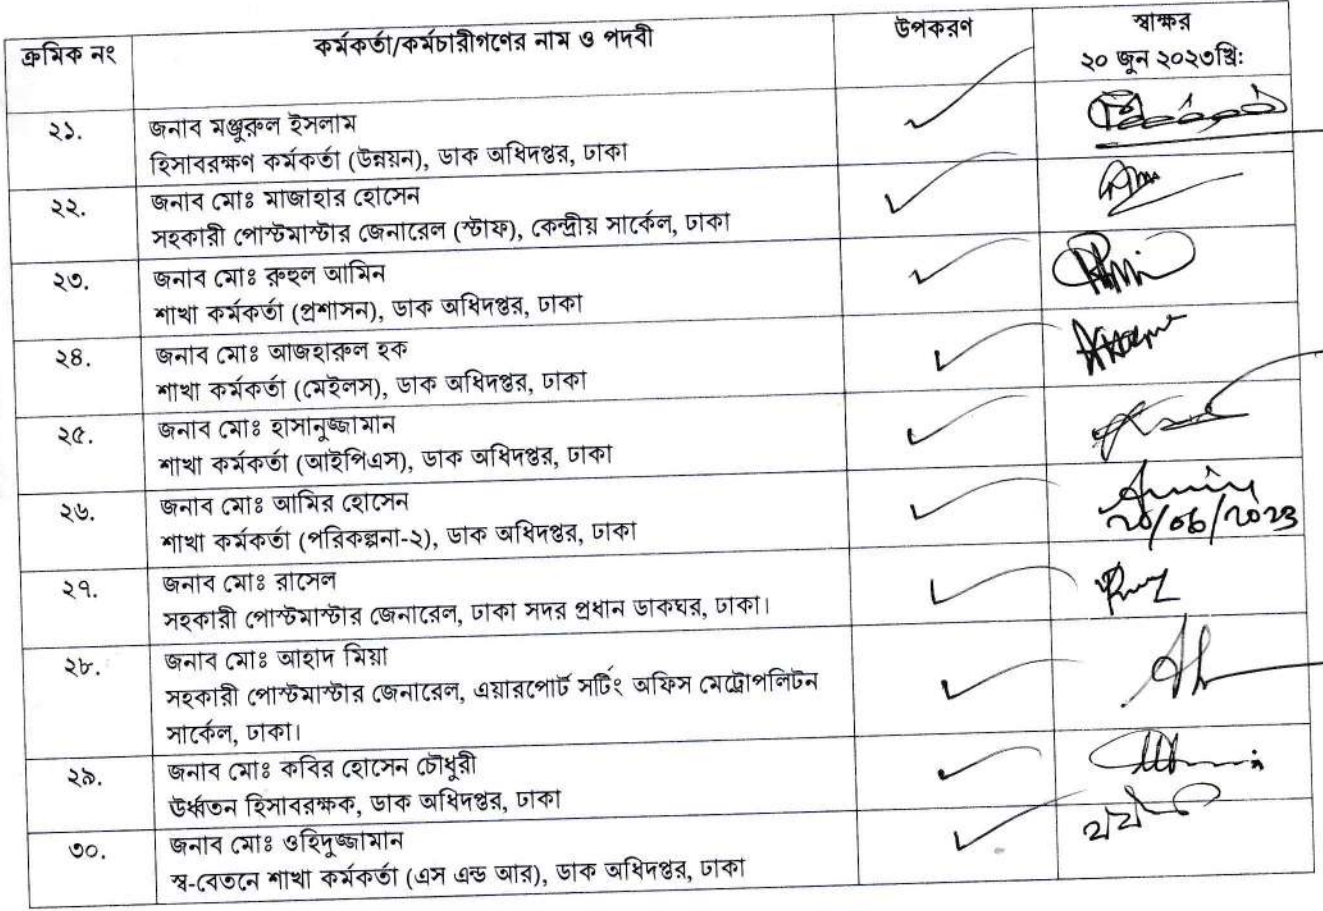 ক্রমিক নং কর্মকর্তা/কর্মচারীগণের নাম ও পদবী উপকরণ স্বাক্ষর
২০ জুন ২০২৩খ্রি:
২১. জনাব মঞ্জুরুল ইসলাম
হিসাবরক্ষণ কর্মকর্তা (উন্নয়ন), ডাক অধিদপ্তর, ঢাকা
২২. জনাব মোঃ মাজাহার হোসেন
সহকারী পোস্টমাস্টার জেনারেল (স্টাফ), কেন্দ্রীয় সার্কেল, ঢাকা
২৩. জনাব মোঃ রুহুল আমিন
শাখা কর্মকর্তা (প্রশাসন), ডাক অধিদপ্তর, ঢাকা
২৪. জনাব মোঃ আজহারুল হক
শাখা কর্মকর্তা (মেইলস), ডাক অধিদপ্তর, ঢাকা
২৫. জনাব মোঃ হাসানুজ্জামান
শাখা কর্মকর্তা (আইপিএস), ডাক অধিদপ্তর, ঢাকা
২৬. জনাব মোঃ আমির হোসেন
শাখা কর্মকর্তা (পরিকল্পনা-২), ডাক অধিদপ্তর, ঢাকা
20/06/2023
২৭. জনাব মোঃ রাসেল
সহকারী পোস্টমাস্টার জেনারেল, ঢাকা সদর প্রধান ডাকঘর, ঢাকা।
২৮. জনাব মোঃ আহাদ মিয়া
সহকারী পোস্টমাস্টার জেনারেল, এয়ারপোর্ট সর্টিং অফিস মেট্রোপলিটন
সার্কেল, ঢাকা।
২৯. জনাব মোঃ কবির হোসেন চৌধুরী
উর্ধ্বতন হিসাবরক্ষক, ডাক অধিদপ্তর, ঢাকা
৩০. জনাব মোঃ ওহিদুজ্জামান
স্ব-বেতনে শাখা কর্মকর্তা (এস এন্ড আর), ডাক অধিদপ্তর, ঢাকা